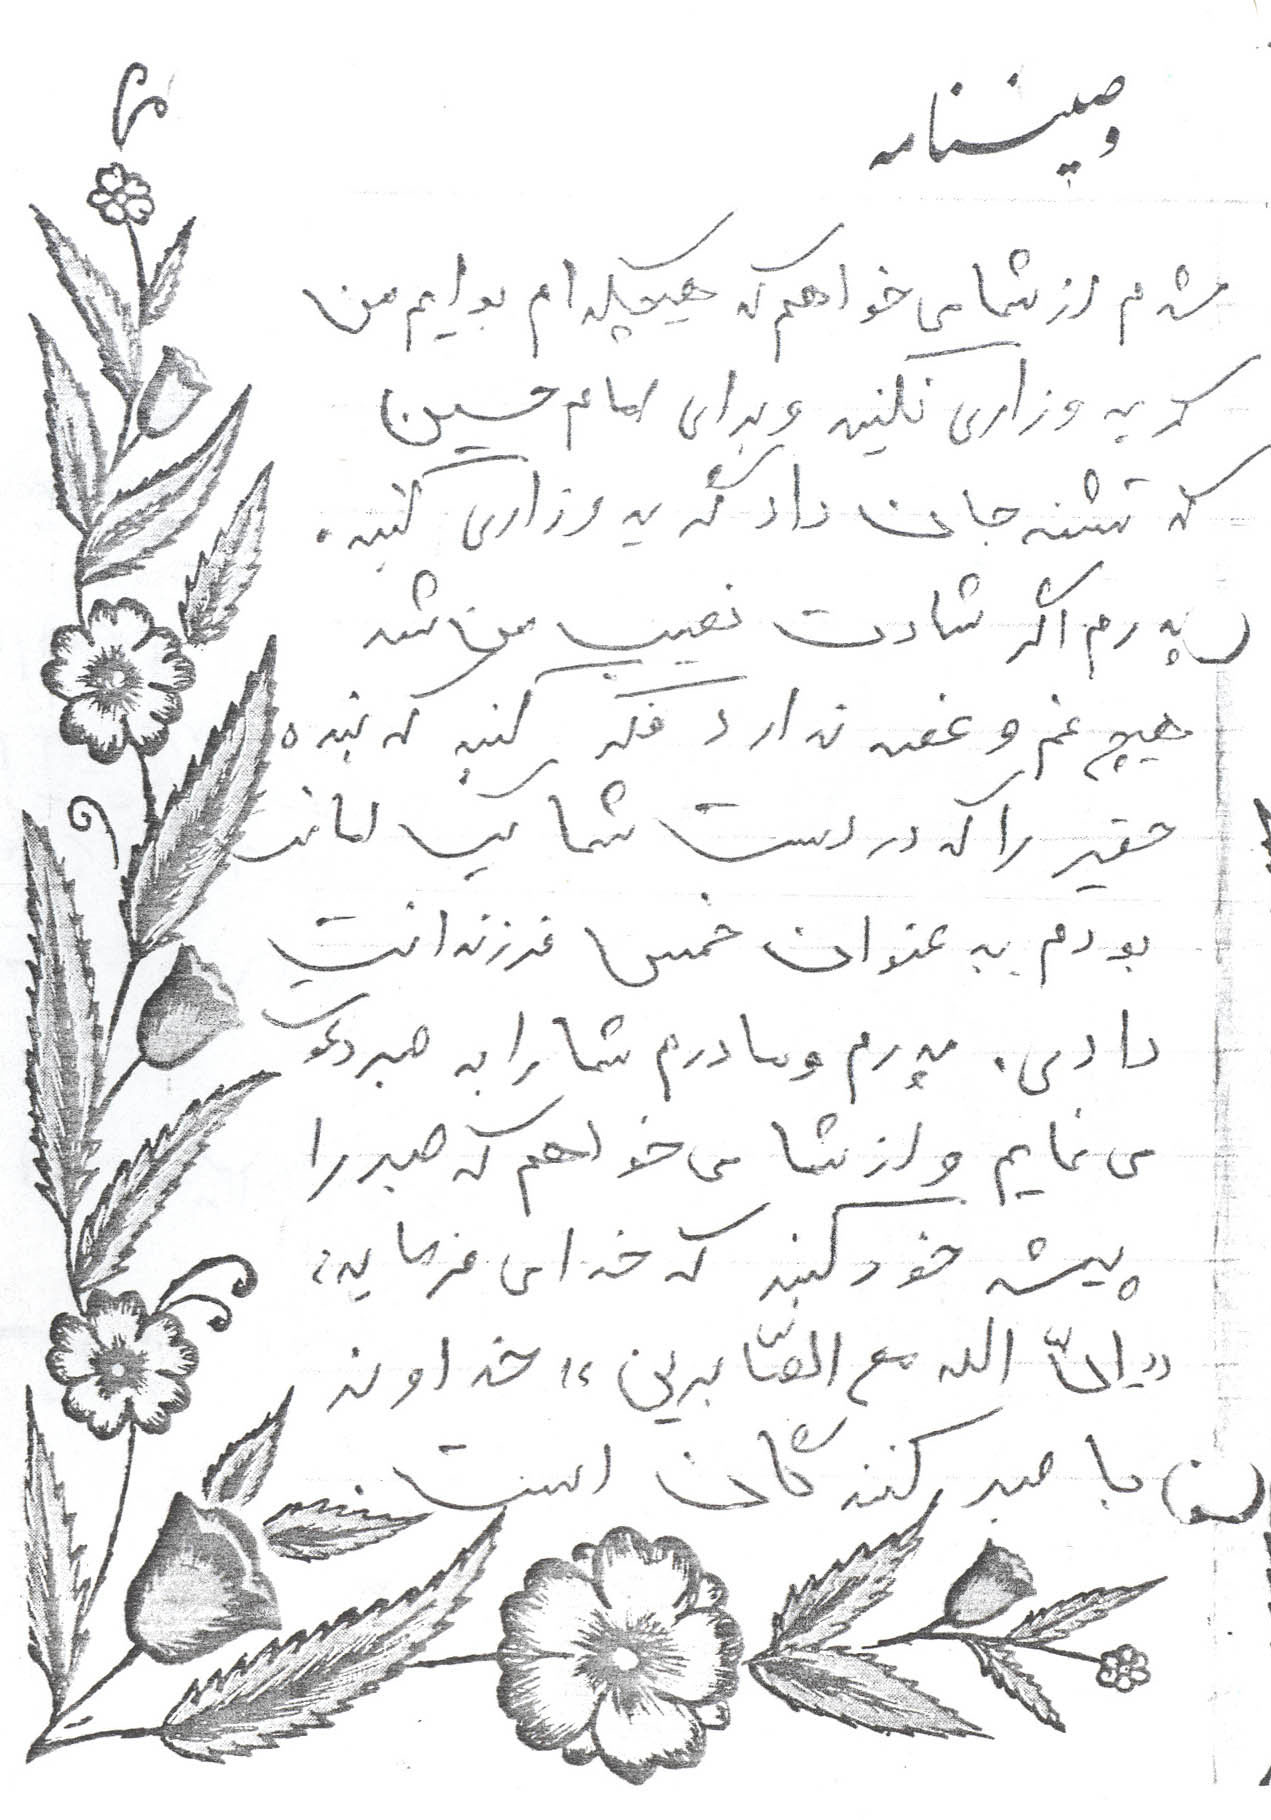 وصیتنامه
شدم از شما می خواهم که هیچکدام برایم من
گریه وزاری نکنید و برای امام حسین
که تشنه جان داد گریه وزاری کنید.
پدرم اگر شادت نصیب من شد
هیچ غم و غصه ندارد فکر کنید که بنده
حقیر را که در دست شما یک امانت
بودم به عنوان خمس فرزندانت
دادی. پدرم و مادرم شما را به صبر دعوت
می نمایم و از شما می خواهم که صبر را
پیشه خود کنید که خدا می فرماید:
«ان اللّه مع الصّابرین» خداوند
با صبر کنندگان است